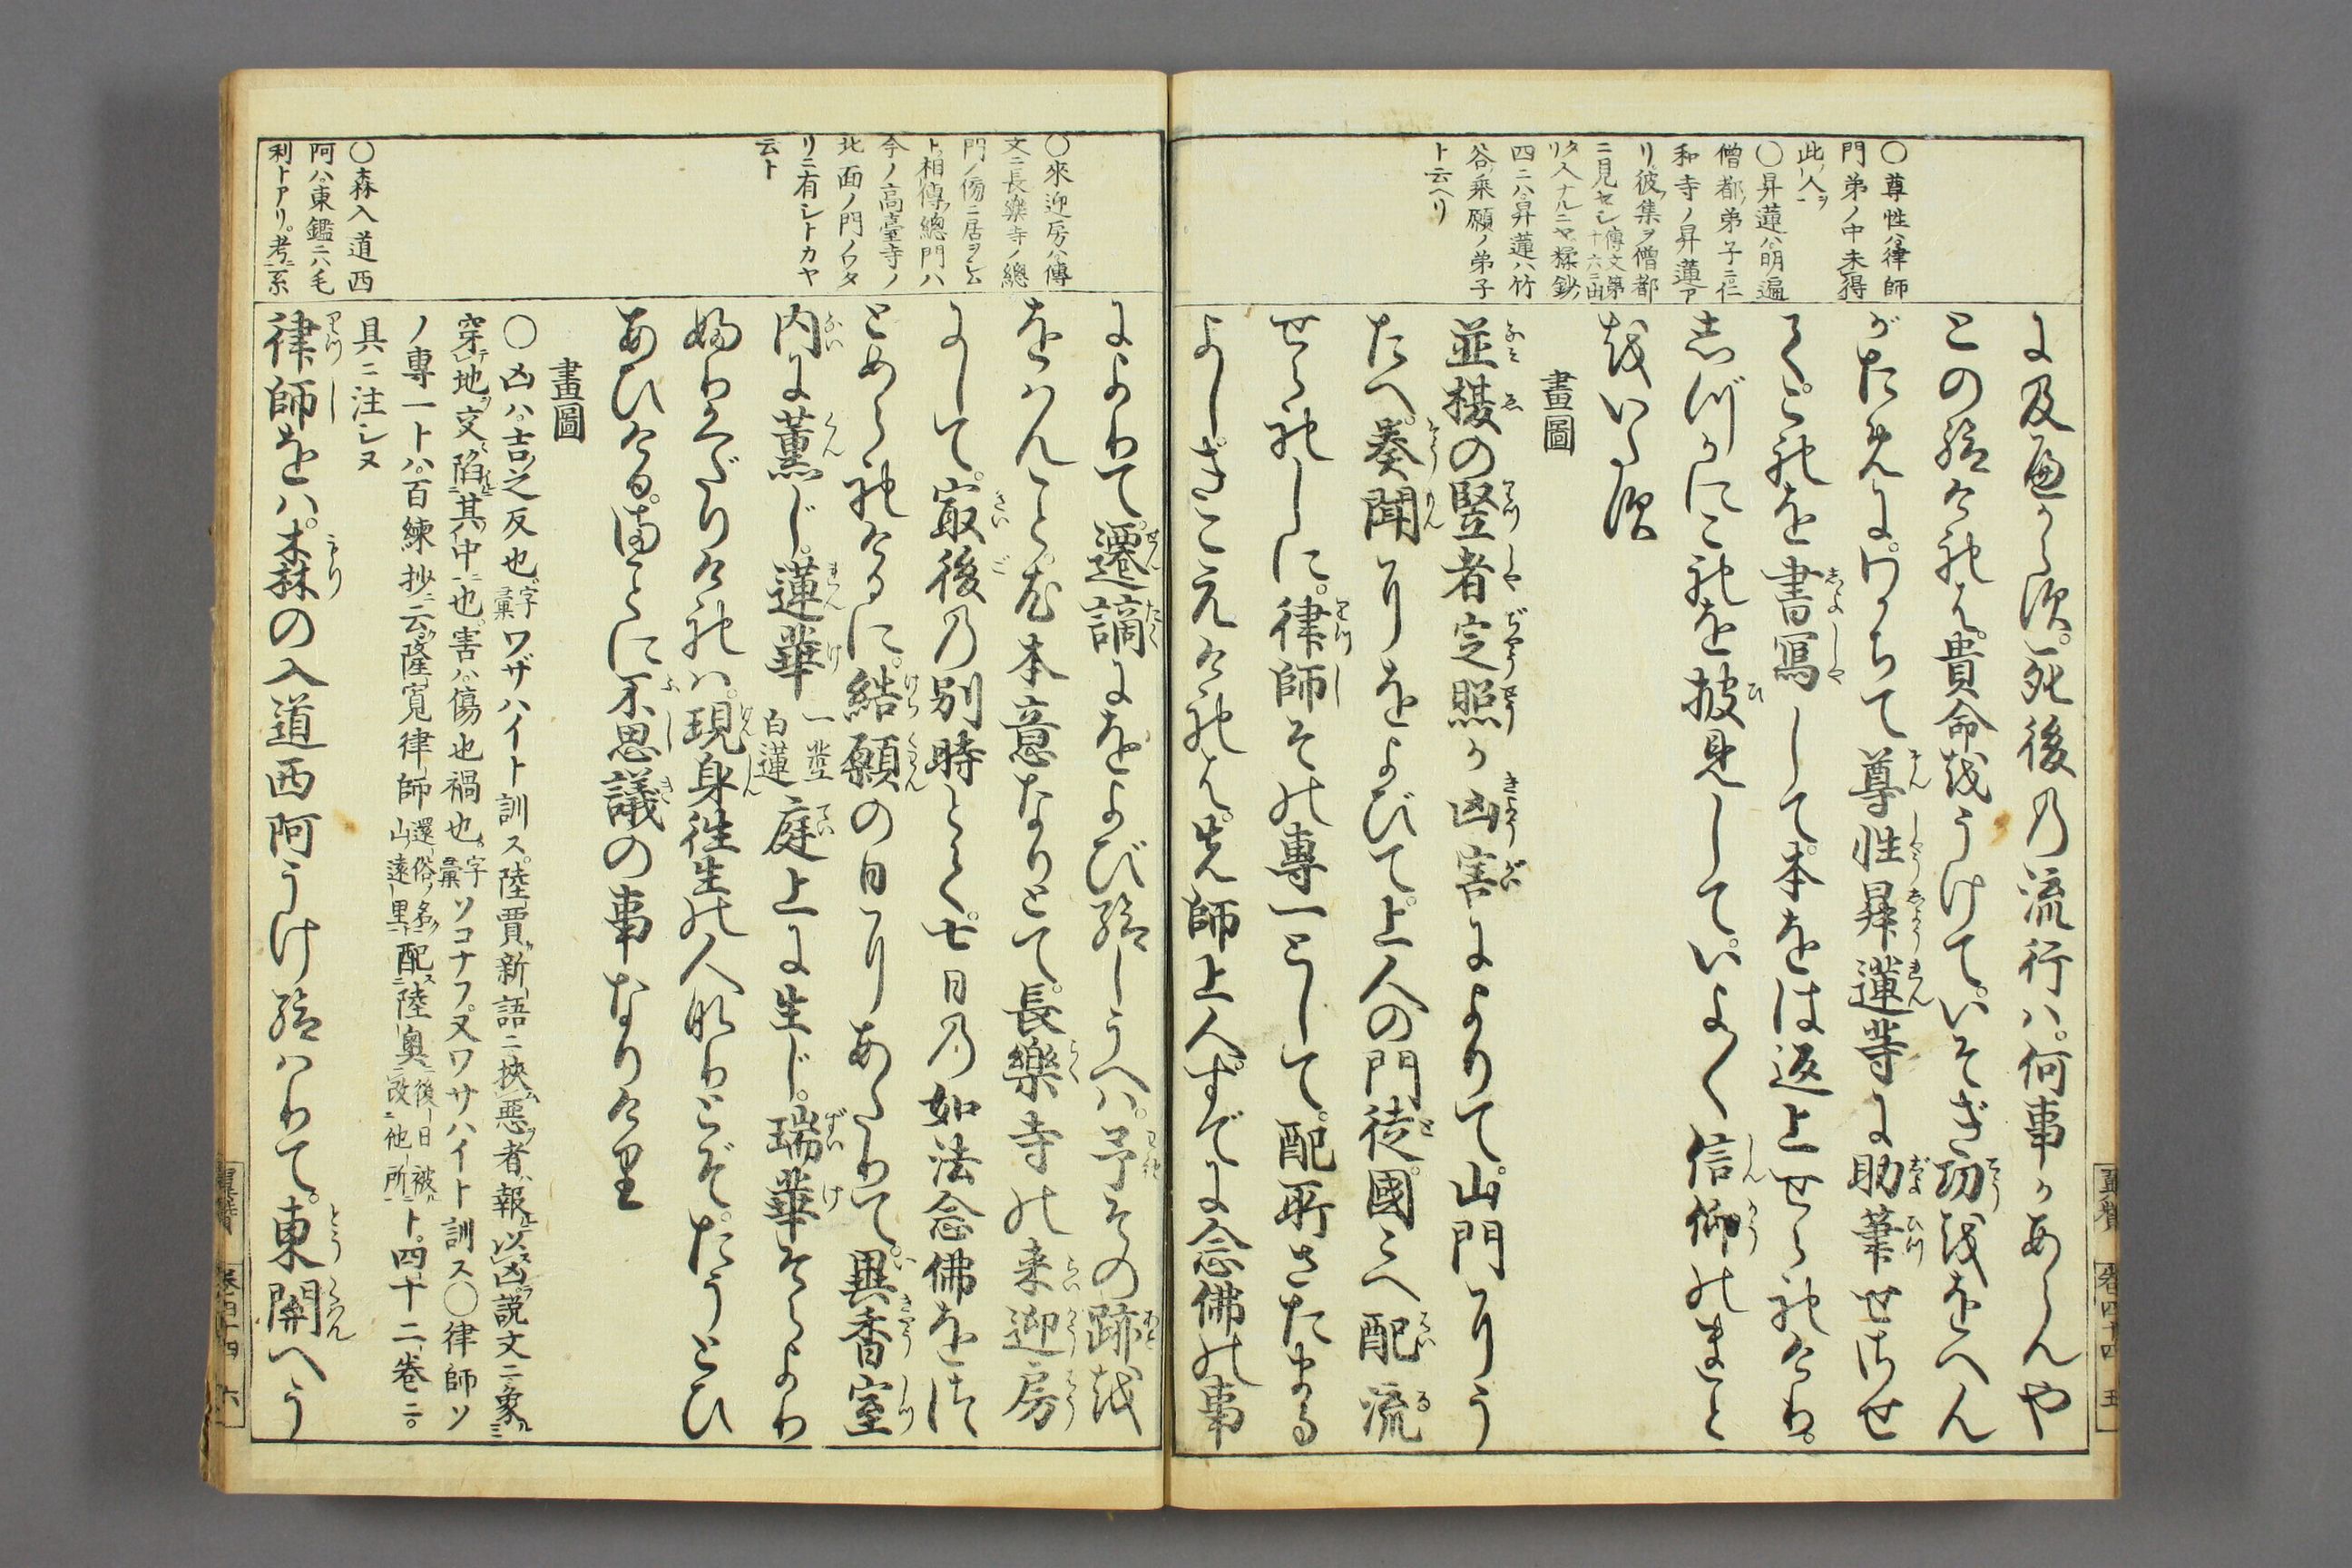 ○尊性ハ律師
門弟ノ中未得
此ノ人ヲ
○昇蓮ハ明遍
僧都ノ弟子ニ仁
和寺ノ昇蓮ア
リ彼ノ集ヲ僧都
ニ見セシ傳文第十六ニ出
タリ人ナルニヤ糅鈔
四二ハ昇蓮ハ竹
谷ノ乗願ノ弟子
ト云ヘリ
に及へからす。死後の流行ハ。何事かあらんや
との給けれは。貴命をうけて。いそぎ功ををへん
がために。わかちて尊性昇蓮等に助筆せさせ
て。これを書寫して。本をは返上せられけり。
志づかにこれを披見して。いよ〱信仰のまこと
をいたす
畫圖
並榎の竪者定照か凶害によりて。山門より
たへ。奏聞におよびて。上人の門徒。國々へ配流
せられしに。律師その專一として。配所さたまる
よし。きこえけれは。先師上人。すでに念佛の事
によりて。遷謫におよび給しうへハ。予その跡を
をハんこと。尤本意なりとて。長樂寺の来迎房
にして。最後の別時とて。七日の如法念佛をは
とめられけるに。結願の日にあたりて。異香室
内に薫じ。蓮華一莖白蓮庭上に生じ。瑞華そらより
ふりくだりけれハ。現身往生の人なりとぞ。たうとひ
あひける。まことに不思議の事なりけり
畫圖
○凶ハ吉之反也字彙ワザハイト訓ス陸賈新語ニ挾惡者ハ報以凶説文ニ象
穿地交陷其中也害ハ傷也禍也字彙ソコナフ又ワサハイト訓ス○律師ソ
ノ專一トハ百練抄ニ云隆寛律師還俗ノ名山遠里配陸奥後日被改他所ト四十二巻ニ
具ニ注シヌ
律師をハ。森の入道西阿うけ給ハりて。東關へう
○來迎房ハ傳
文ニ長樂寺ノ總
門ノ傍ニ居ヲシム
ト相傳總門ハ
今ノ高臺寺ノ
北面ノ門ノワタ
リニ有シトカヤ
云ト
○森入道西
阿ハ東鑑ニハ毛
利トアリ考系
巻四十四 五
巻四十四 六